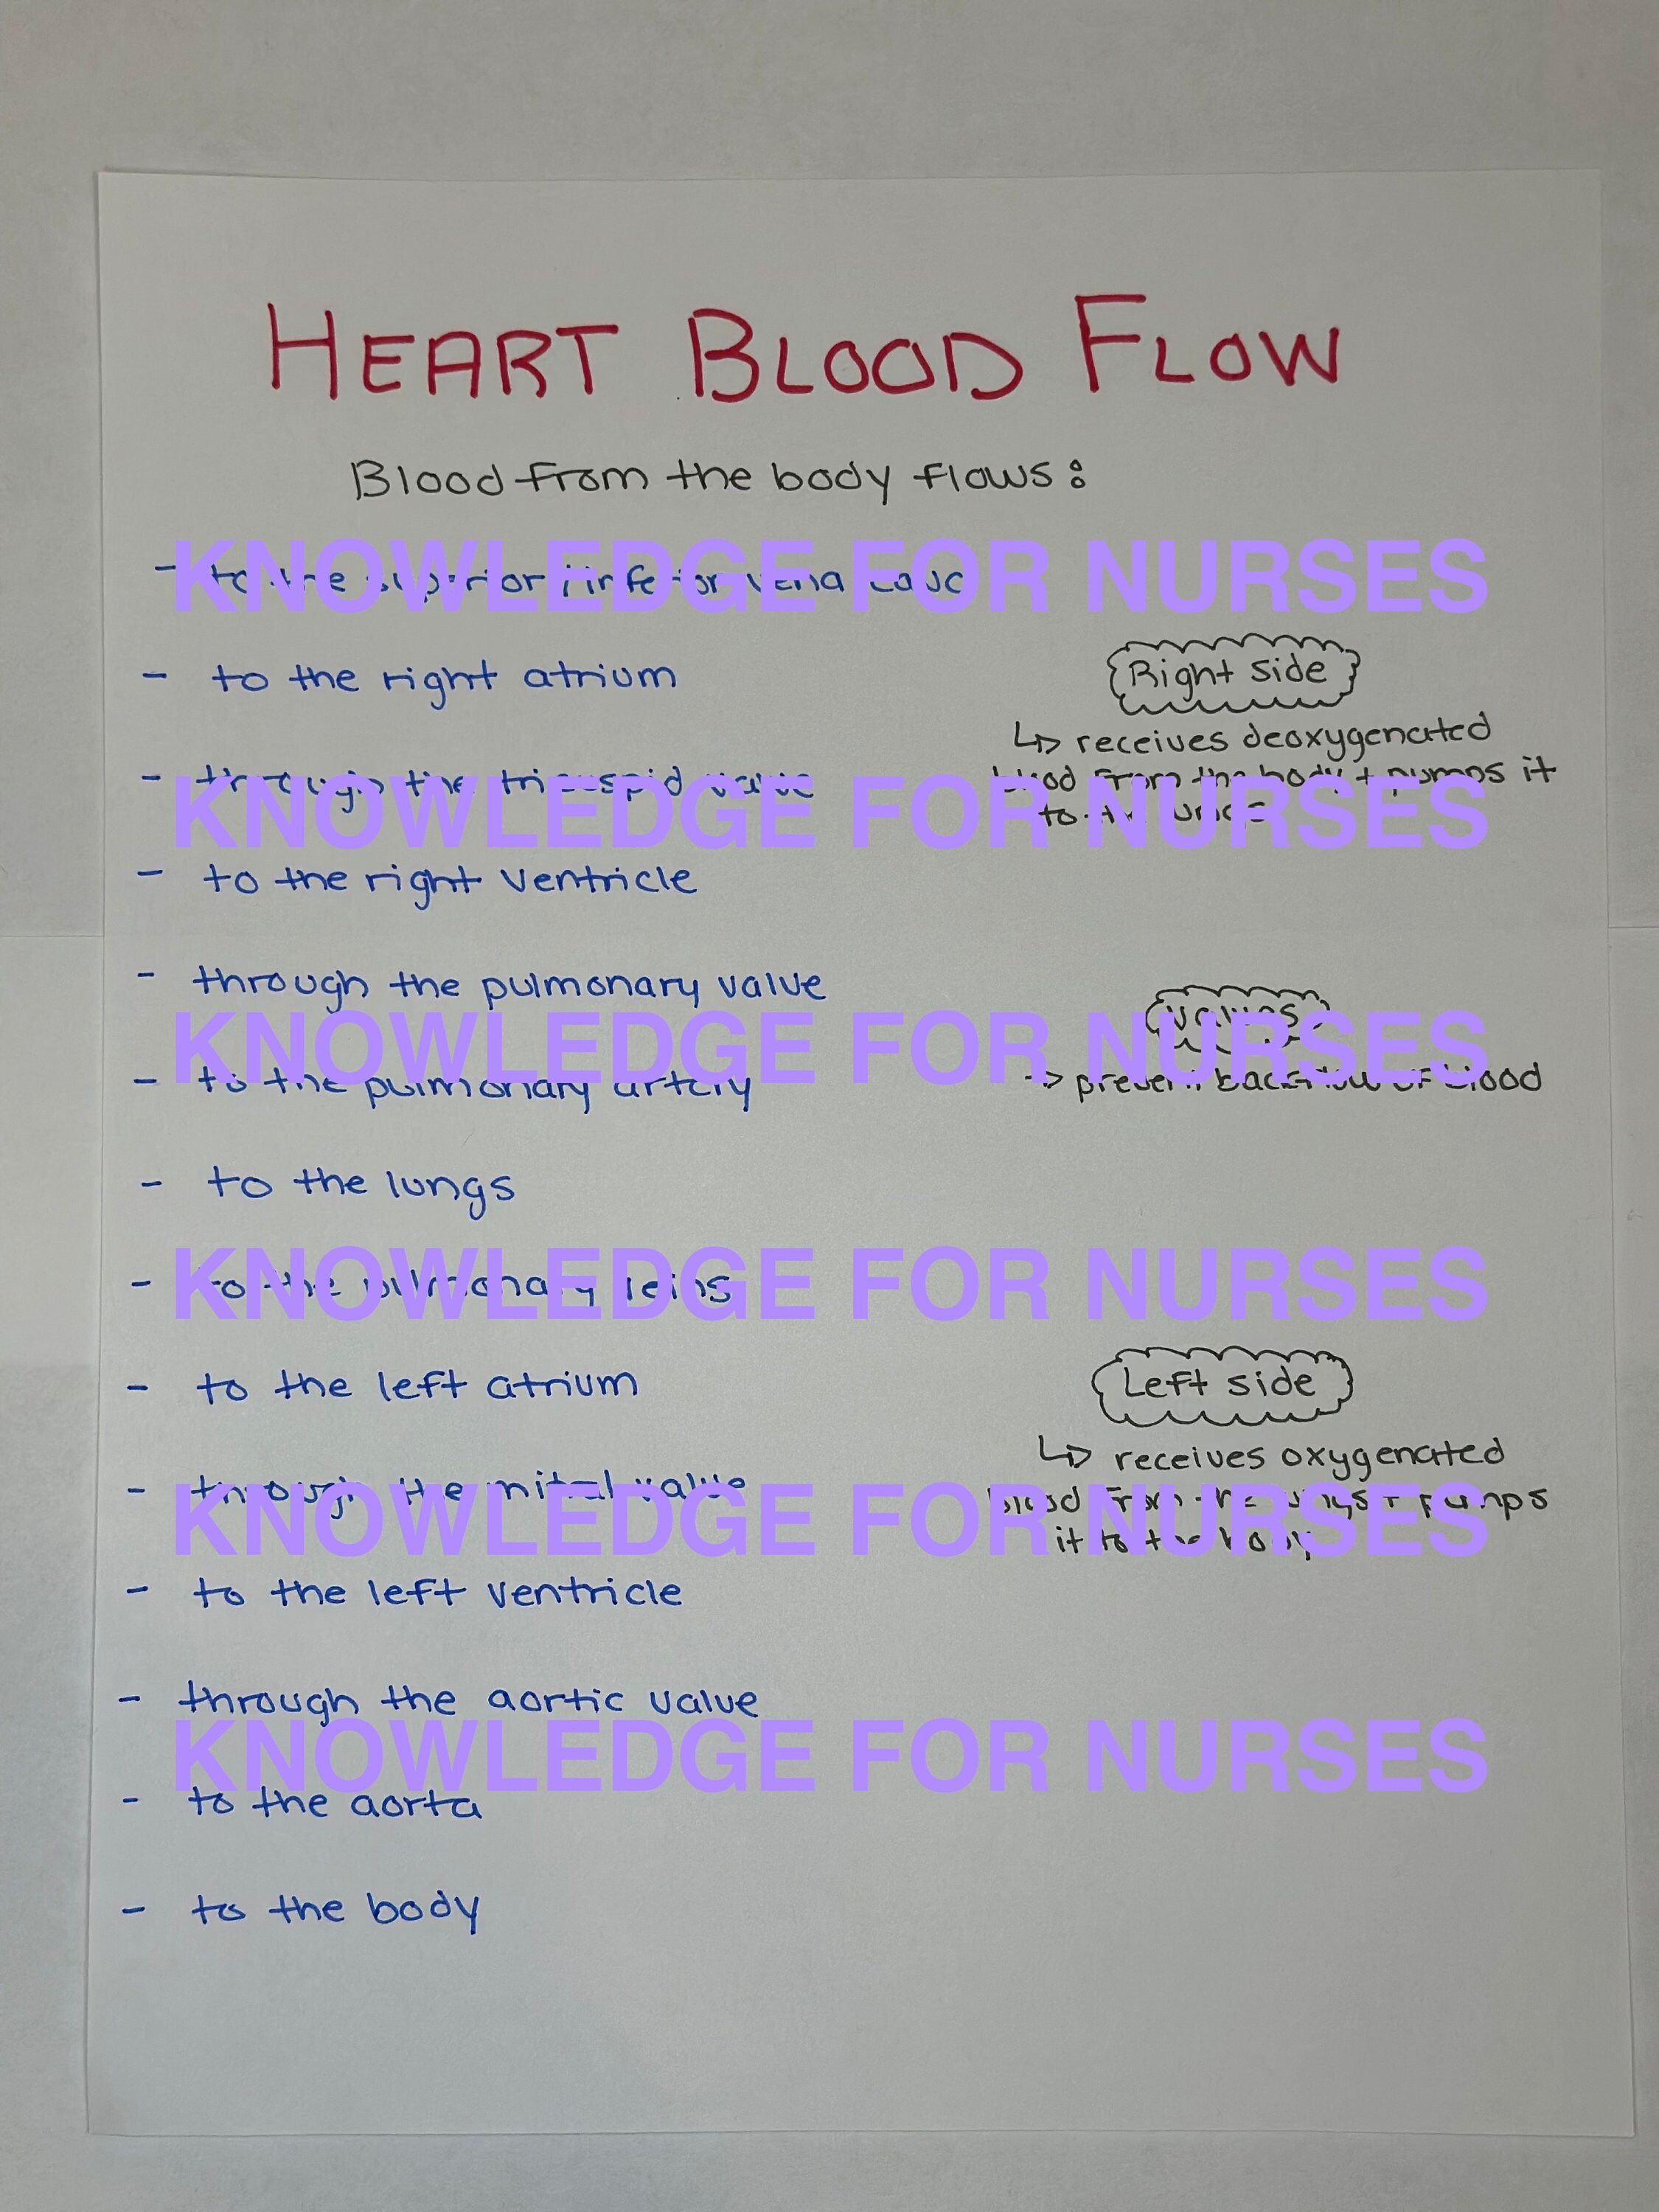 HEART BLOOD FLOW
Blood from the body flows:
KNOWLEDGE FOR NURSES
- to the superior / inferior vena cava
- to the right atrium
Right side
↳ receives deoxygenated
- through the tricuspid valve
blood from the body + pumps it
to the lungs
KNOWLEDGE FOR NURSES
- to the right ventricle
- through the pulmonary valve
Valves
KNOWLEDGE FOR NURSES
- to the pulmonary artery
→ prevent backflow of blood
- to the lungs
KNOWLEDGE FOR NURSES
- to the pulmonary veins
- to the left atrium
Left side
↳ receives oxygenated
- through the mitral valve
blood from the lungs + pumps
it to the body
KNOWLEDGE FOR NURSES
- to the left ventricle
- through the aortic valve
KNOWLEDGE FOR NURSES
- to the aorta
- to the body